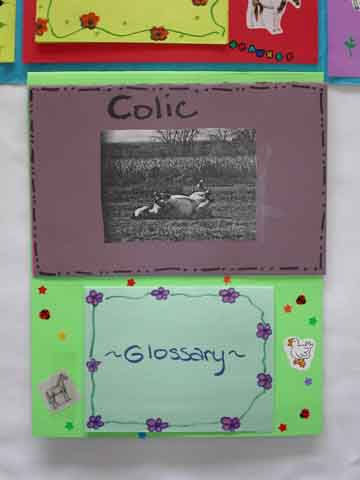 Colic
~Glossary~